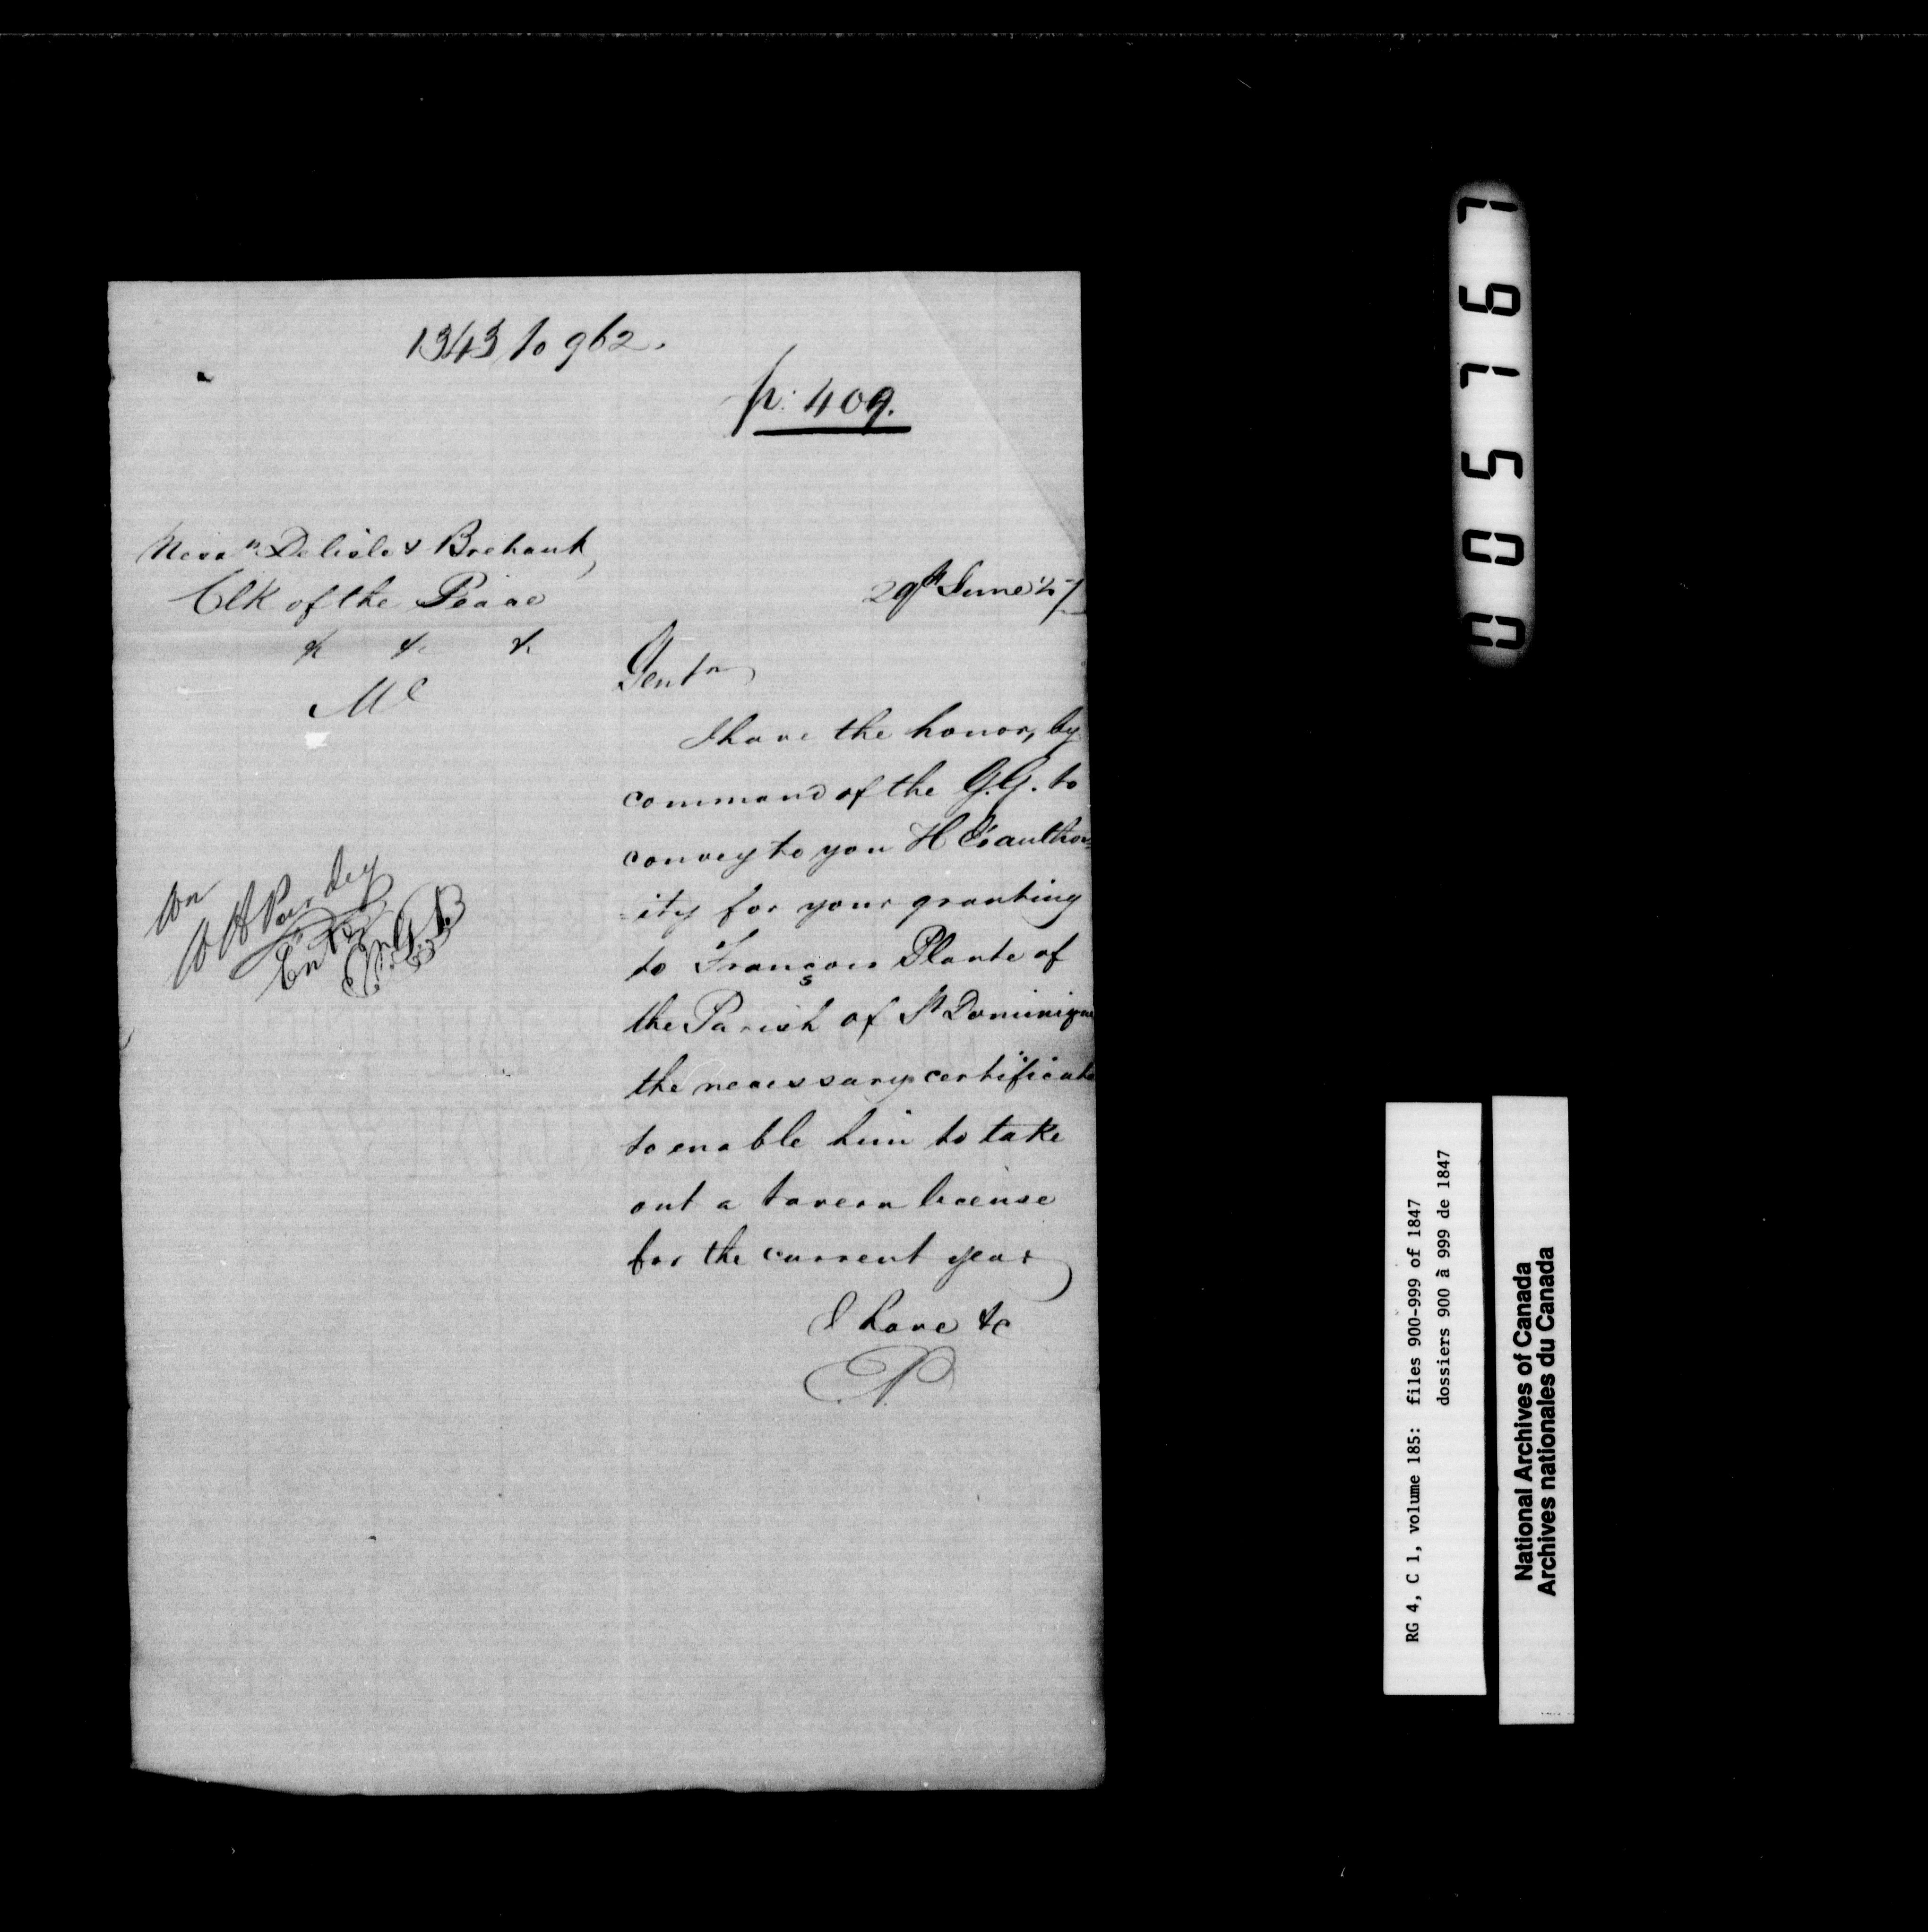 1343 to 962.
p: 409.
Messrs Delisle & Brehaut,
Clk of the Peace
&c &c &c
Ml
29th June '47
Gentn
I have the honor, by
command of the G.G. to
convey to you H Es author=
=ity for your granting
to François Plante of
the Parish of St Dominique
the necessary certificate
to enable him to take
out a tavern license
for the current year
I have &c
P.
Entd
005767
RG 4, C 1, volume 185: files 900-999 of 1847
dossiers 900 à 999 de 1847
National Archives of Canada
Archives nationales du Canada